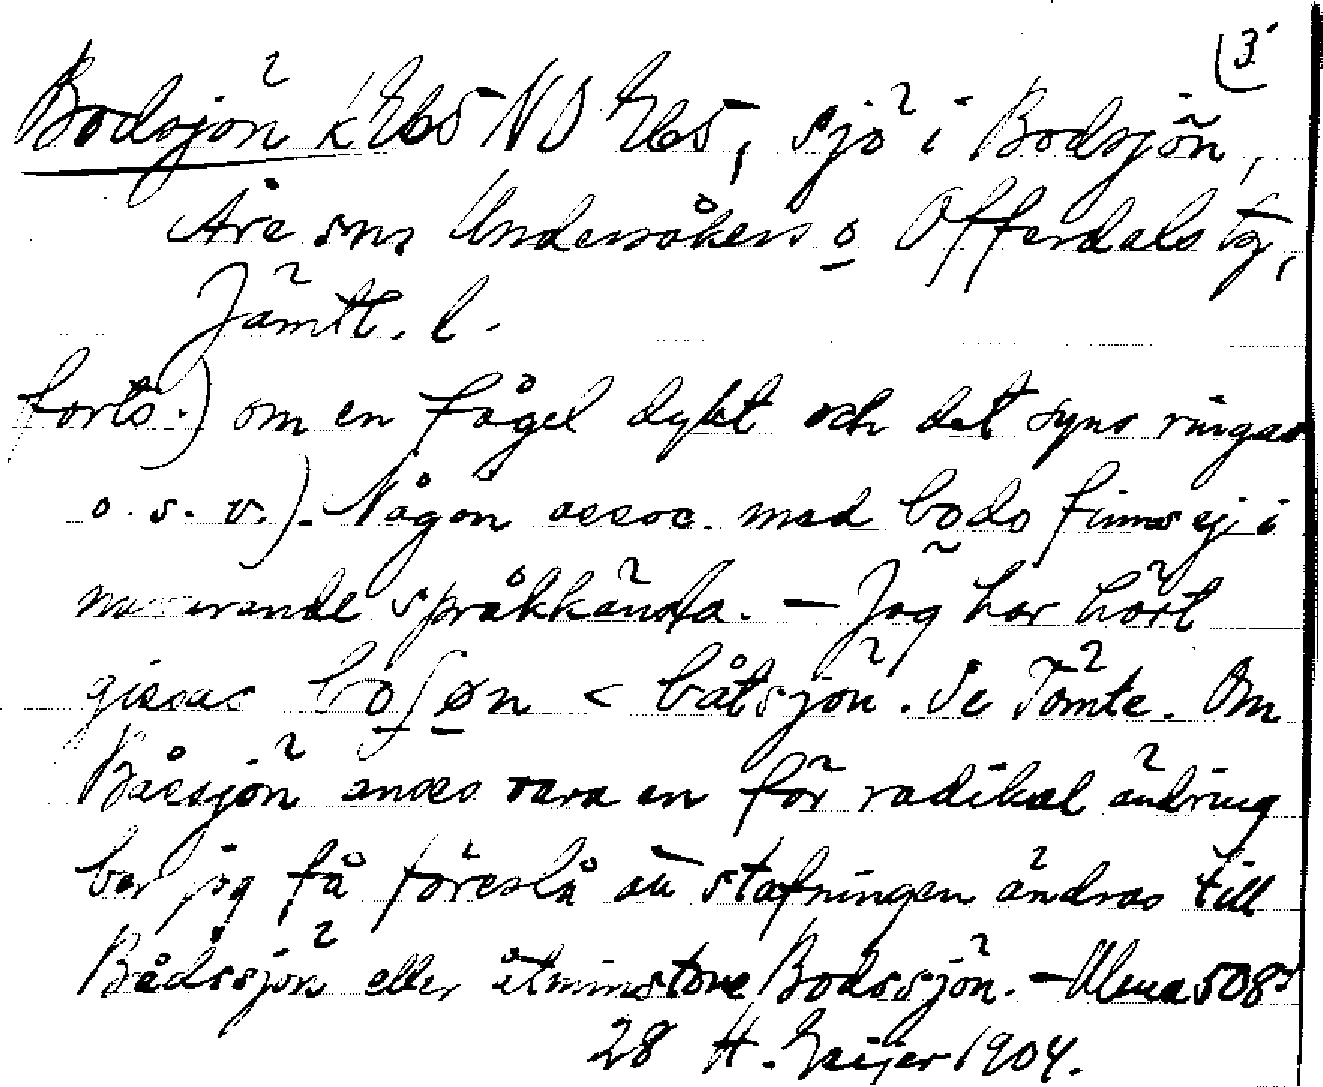 (3.
Bodsjön < Eb5 NO Eb5, sjö i Bodsjön,
Åre sns Undersåkers o Offerdals tg,
Jämtl. l.
forts.) om en fågel dykt och det syns ringar
o. s. v.). Någon assoc. med bods finns ej i
nuvarande språkkänsla. – Jag har hört
gissas boʃøn < båtsjön. Se Tömte. Om
Båssjön anses vara en för radikal ändring
ber jag få föreslå att stafningen ändras till
Bådssjön eller åtminstone Bodssjön. –Ulma 508:
28 H. Geijer 1904.